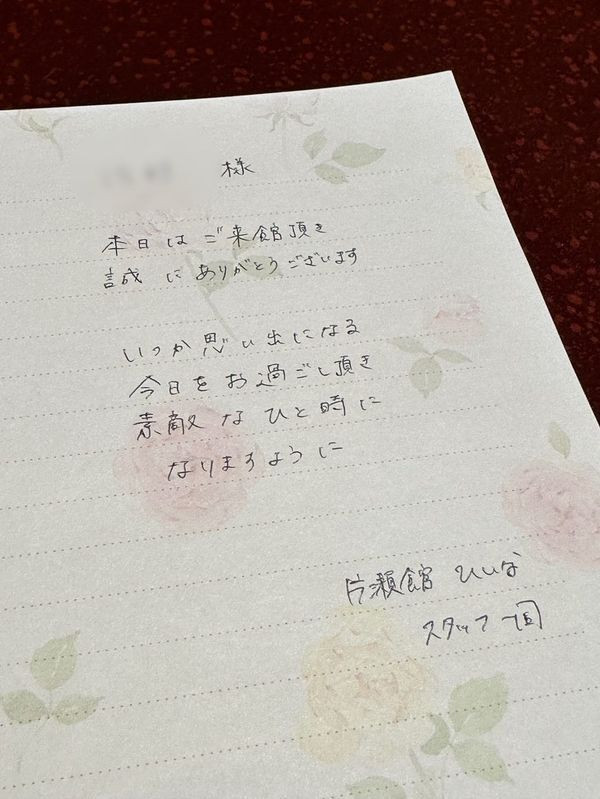 様
本日はご来館頂き
誠にありがとうございます
いつか思い出になる
今日をお過ごし頂き
素敵なひと時に
なりますように
片瀬館 ひいな
スタッフ一同